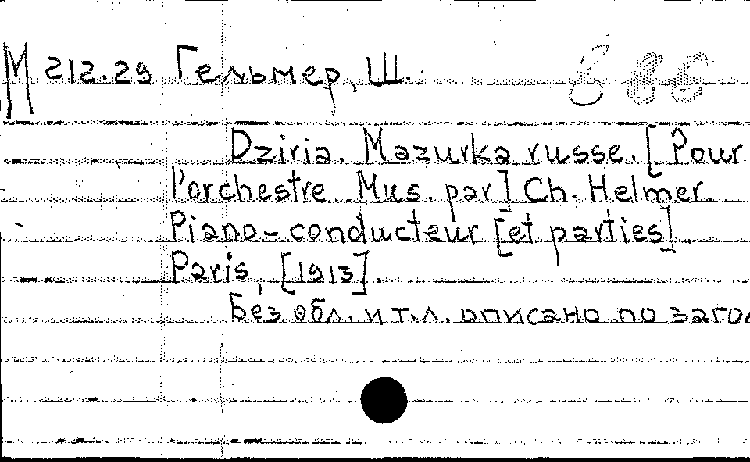 М 212.29 Гельмер, Ш.
Dziria. Mazurka russe. [Pour
l'orchestre. Mus. par] Ch. Helmer.
Piano-conducteur [et parties].
Paris, [1913].
Без обл. и т.л. описано по заго